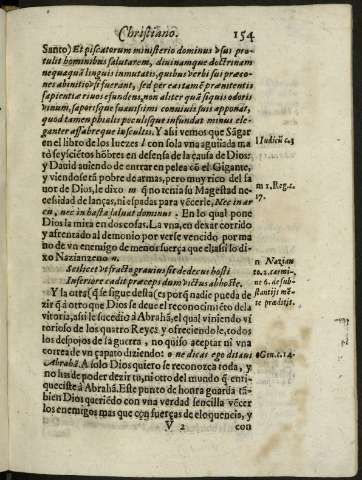 Christiano. 154
Santo) Et piscatorum ministerio dominus vsus pro-
tulit hominibus salutarem, diuinamque doctrinam
nequaquã linguis inmutatis, quibus verbi sui præco-
nes ab initio vsi fuerant, sed per eas tamẽ præeminentis
sapientiæ riuos efundens, non aliter quã si quis odoris
vinum, saporisque suauissimi conuiuis suis apponat,
quod tamen phialis poculisque infundat minus ele-
ganter affabreque insculptis. Y asi vemos que Sãgar
en el libro de los Iuezes l con sola vna aguijada ma
tò seyscietos hõbres en defensa de la causa de Dios:
y Dauid auiendo de entrar en pelea cõ el Gigante,
y viendose tã pobre de armas, pero muy rico del fa
uor de Dios, le dixo m q̃ no tenia su Magestad ne-
cesidad de lanças, ni espadas para vẽcerle, Nec in ar
cu, nec in hasta saluat dominus. En lo qual pone
Dios la mira en dos cosas. La vna, en dexar corrido
y afrentado al demonio por verse vencido por ma
no de vn enemigo de menos fuerça que el: asi lo di-
xo Nazianzeno n.
Scilicet vt fracto grauius sit dedecus hosti
Inferiore cadit præceps dum victus ab hoste.
Y la otra (q̃ se sigue desta) es porq̃ nadie pueda de
zir q̃ a otro que Dios se deue el reconocimiẽto de la
vitoria, asi le sucediò a Abrahã, el qual viniendo vi
torioso de los quatro Reyes y ofreciendole, todos
los despojos de la guerra, no quiso aceptar ni vna
correa de vn çapato diziendo: o ne dicas ego ditaui
Abrahã. A solo Dios quiero se reconozca toda, y
no has de poder dezir tu, ni otro del mundo q̃ enri-
queciste à Abrahã. Este punto de honra guarda tã-
bien Dios queriẽdo con vna verdad sencilla vẽcer
los enemigos mas que con fuerças de eloquencia, y
V 2 con
l Iudicũ c.3
m 1. Reg.c.
17.
n Nazian
to.2. carmi-
ne 6. de sub-
stantijs mẽ-
te præditis.
o Gen.c.14.